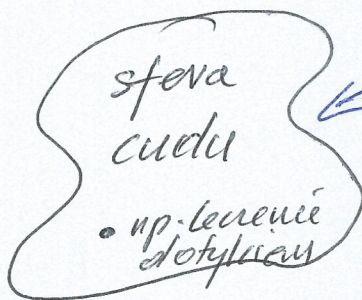 sfera
cudu
• np. leczenie
dotykiem